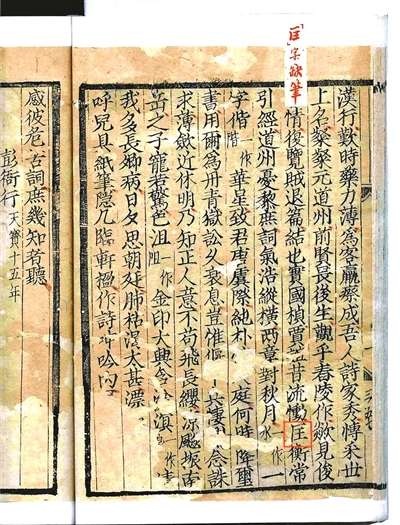 「匡」字缺筆
漢行歎時藥力薄為客羸瘵成吾人詩家秀愽采世
上名粲粲元道州前賢畏後生觀乎舂陵作歘見俊
情復覽賊退篇結也實國楨賈誼昔流慟匡衡常
引經道州憂黎庶詞氣浩縱橫兩章對秋月一作水一
字偕一作階華星致君唐虞際純朴庭何時降璽
書用爾為丹青獄訟久衰息豈惟偃念誅
求薄斂近休明乃知正人意不苟飛長纓涼飈振南
岳之子寵若驚色沮一作阻金印大興含滇一作
我多長卿病日夕思朝廷肺枯渴太甚漂
呼兒具紙筆隱几臨軒楹作詩呻吟内
感彼危苦詞庶幾知者聽
彭衙行天寶十五年